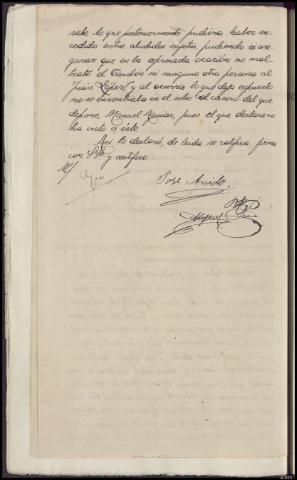 sabe lo que posteriormente pudiera haber su-
cedido entre aludidos sujetos pudiendo si ase-
gurar que en la expresada ocasión no mal-
trató el Candior ni ninguna otra persona al
Juan López y al ocurrir lo que deja expuesto
no se encontraba en el sitio del careo del que
depone, Manuel Macias, pues el que declara no
ha visto a éste.
Así lo declaró, de leida se ratifica firma
con S.Sª y certifico.
José
Miguel